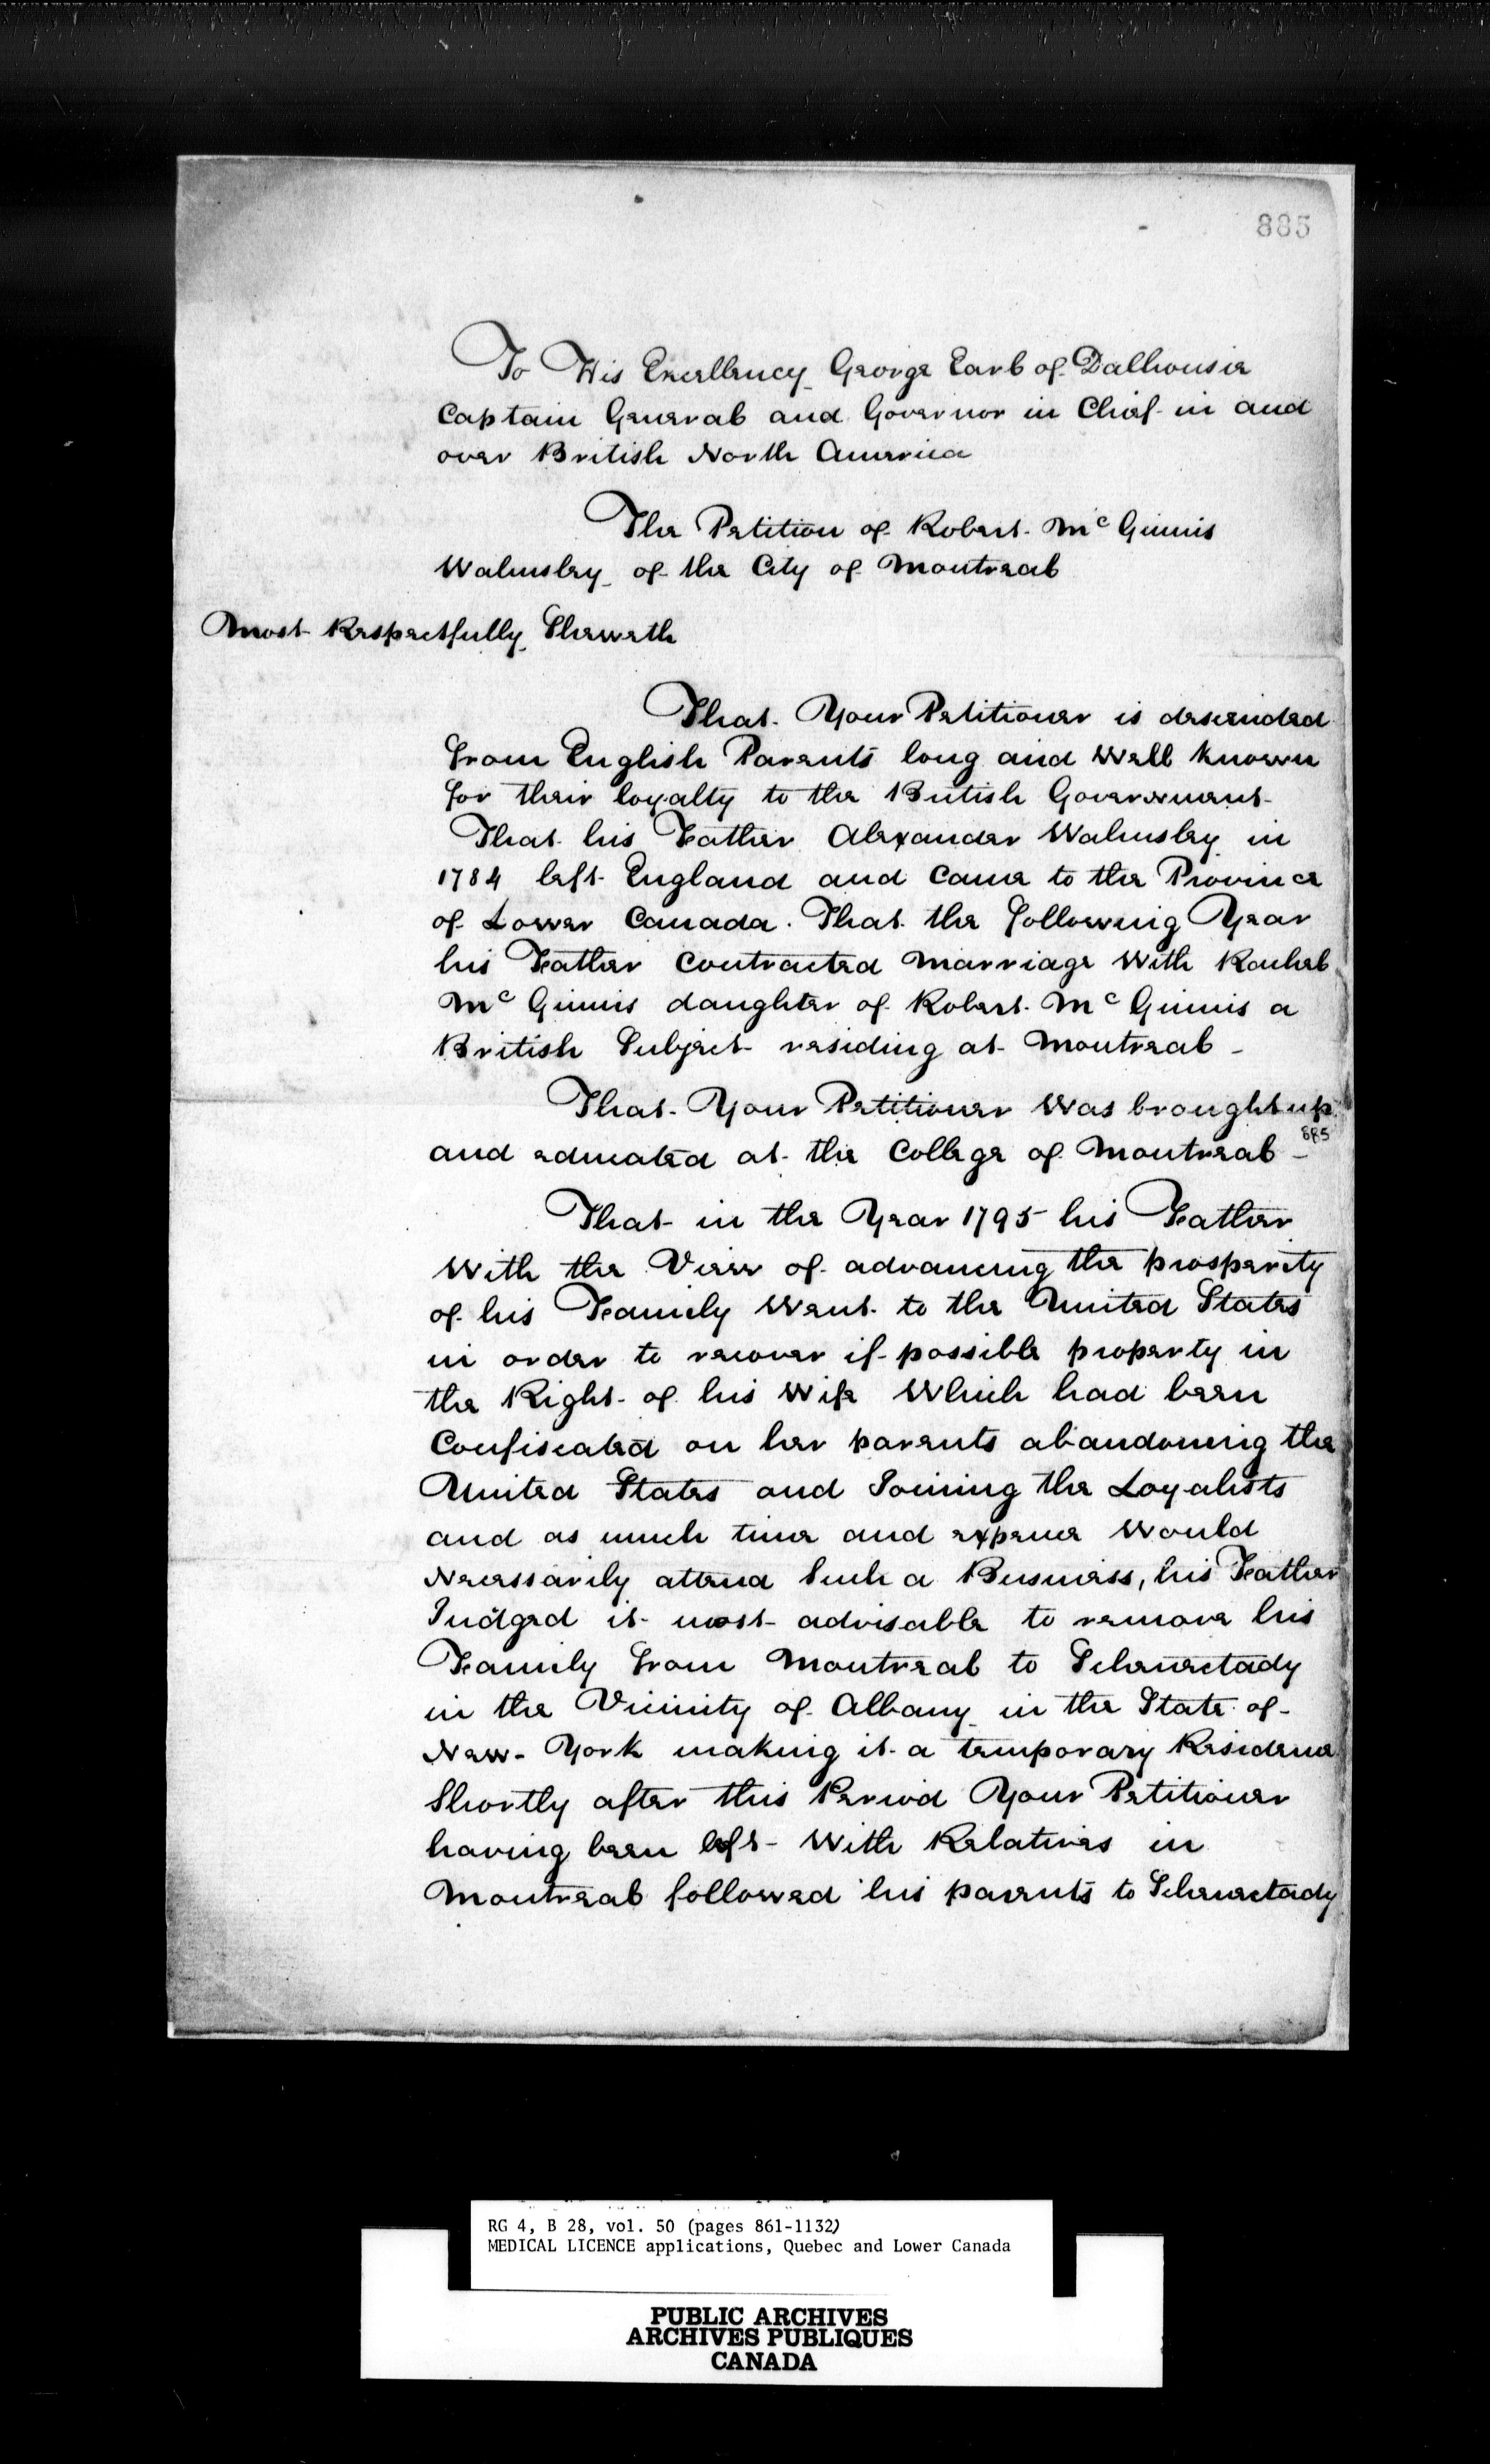 885
To His Excellency George Earl of Dalhousie
Captain General and Governor in Chief in and
over British North America
The Petition of Robert McGinnis
Walmsley of the City of Montreal
Most Respectfully Sheweth
That Your Petitioner is descended
from English Parents long and Well known
for their loyalty to the British Government
That his Father Alexander Walmsley in
1784 left England and Came to the Province
of Lower Canada. That the following Year
his Father Contracted Marriage With Rachel
McGinnis daughter of Robert McGinnis a
British Subject residing at Montreal -
That Your Petitioner Was brought up
885
and educated at the College of Montreal -
That in the Year 1795 his Father
With the View of advancing the prosperity
of his Family Went to the United States
in order to recover if possible property in
the Right of his Wife Which had been
Confiscated on her parents abandoning the
United States and Joining the Loyalists
and as much time and expence Would
Necessarily attend Such a Business, his Father
Judged it most advisable to remove his
Family from Montreal to Schenectady
in the Vicinity of Albany in the State of
New-York making it a temporary Residence
Shortly after this Period Your Petitioner
having been left With Relatives in
Montreal followed his parents to Schenectady
RG 4, B 28, vol. 50 (pages 861-1132)
MEDICAL LICENCE applications, Quebec and Lower Canada
PUBLIC ARCHIVES
ARCHIVES PUBLIQUES
CANADA